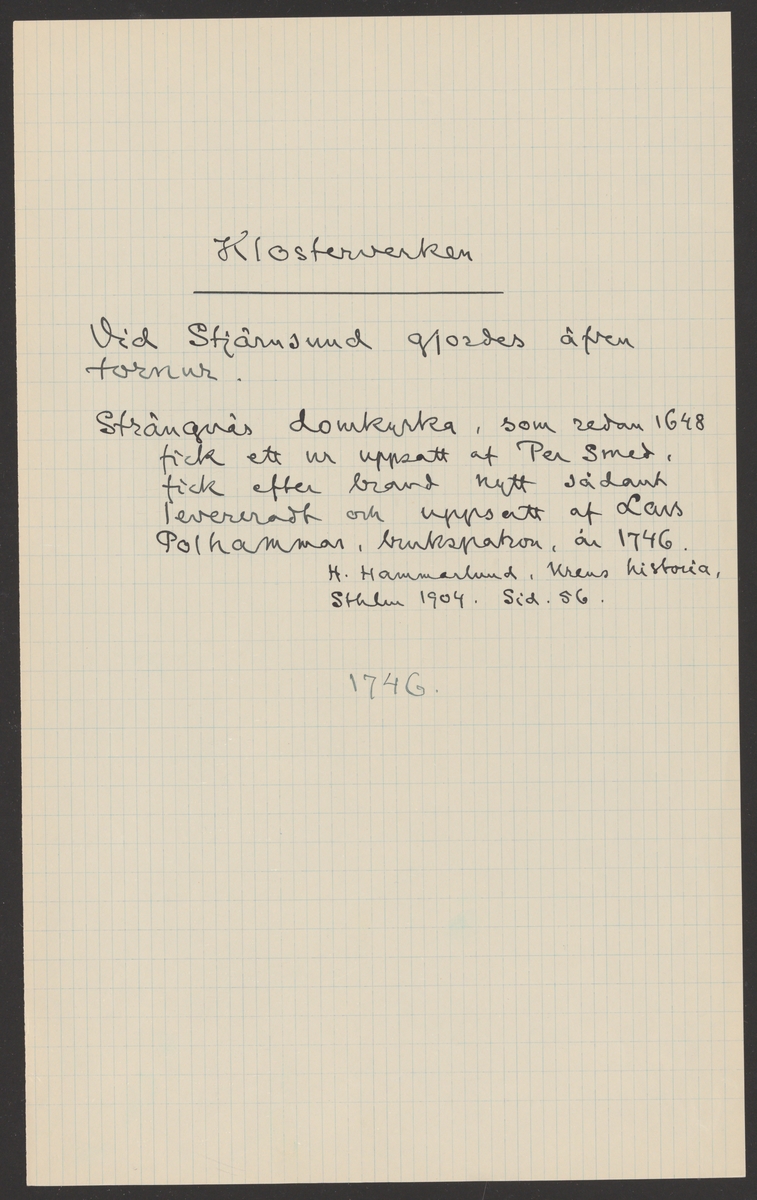 Klosterverken
Vid Stjärnsund gjordes äfven
tornur.
Strängnäs domkyrka, som redan 1648
fick ett ur uppsatt af Per Smed,
fick efter brand nytt sådant
levereradt och uppsatt af Lars
Polhammar, brukspatron, år 1746.
H. Hammarlund, Urens historia,
Sthlm 1904. Sid. 56.
1746.